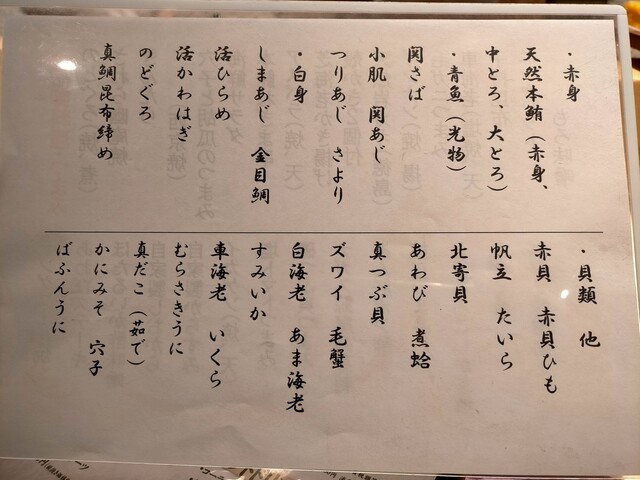 ・赤身
天然本鮪（赤身、
中とろ、大とろ）
・青魚（光物）
関さば
小肌　関あじ
つりあじ　さより
・白身
しまあじ　金目鯛
活ひらめ
活かわはぎ
のどぐろ
真鯛昆布締め
・貝類　他
赤貝　赤貝ひも
帆立　たいら
北寄貝
あわび　煮蛤
真つぶ貝
ズワイ　毛蟹
白海老　あま海老
すみいか
車海老　いくら
むらさきうに
真だこ（茹で）
かにみそ　穴子
ばふんうに